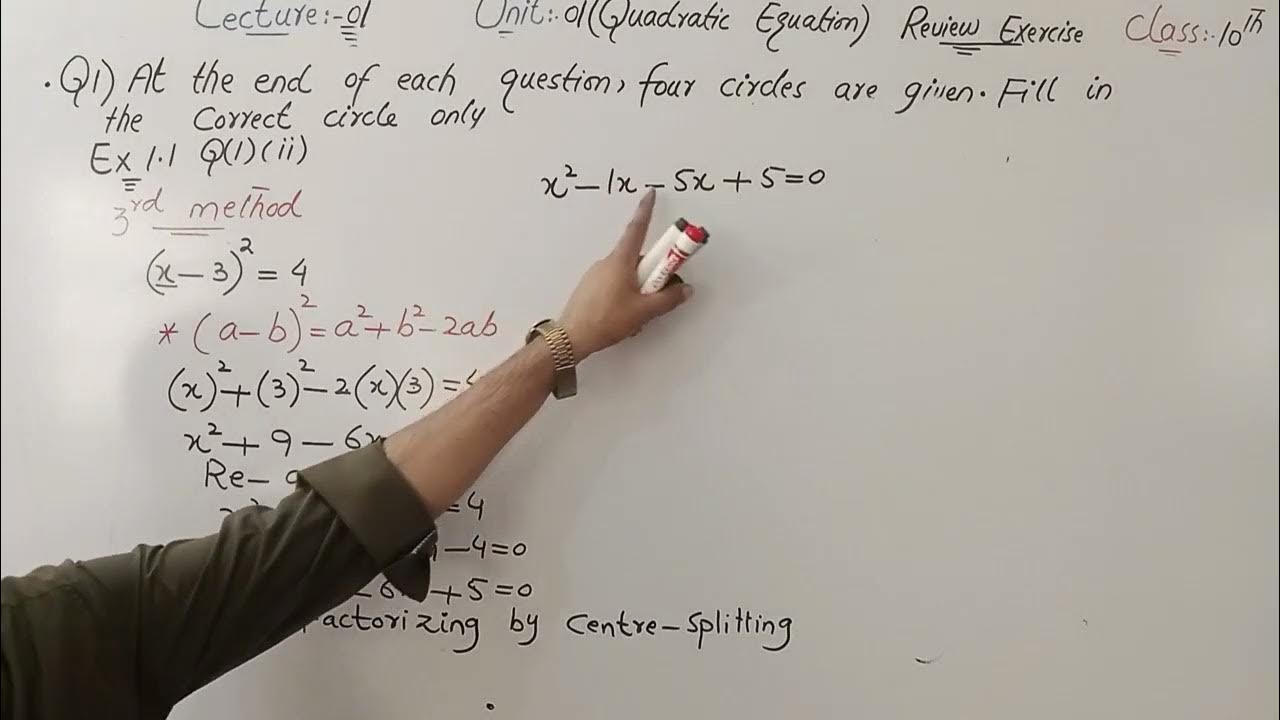 Lecture:-01 Unit:-01(Quadratic Equation) Review Exercise Class:-10th
.Q1) At the end of each question, four circles are given. Fill in
the correct circle only
Ex 1.1 Q(1)(ii)
3rd method
(x-3)²=4
* (a-b)²=a²+b²-2ab
(x)²+(3)²-2(x)(3)=4
x²+9-6x
Re-
=4
-4=0
-6 +5=0
actorizing by Centre-splitting
x²-1x-5x+5=0